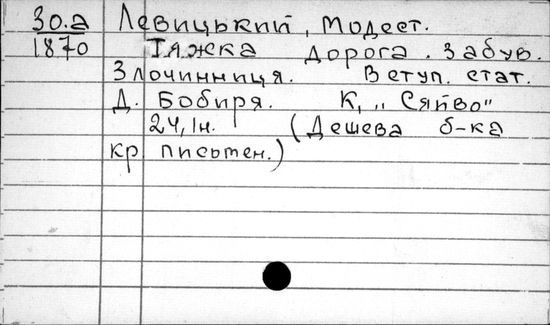 30.а Левицький, Модест.
1870 Тяжка дорога. Забув.
Злочинниця. Вступ. стат.
Д. Бобиря. К, „Сяйво"
24, 1н. (Дешева б-ка
кр письмен.)